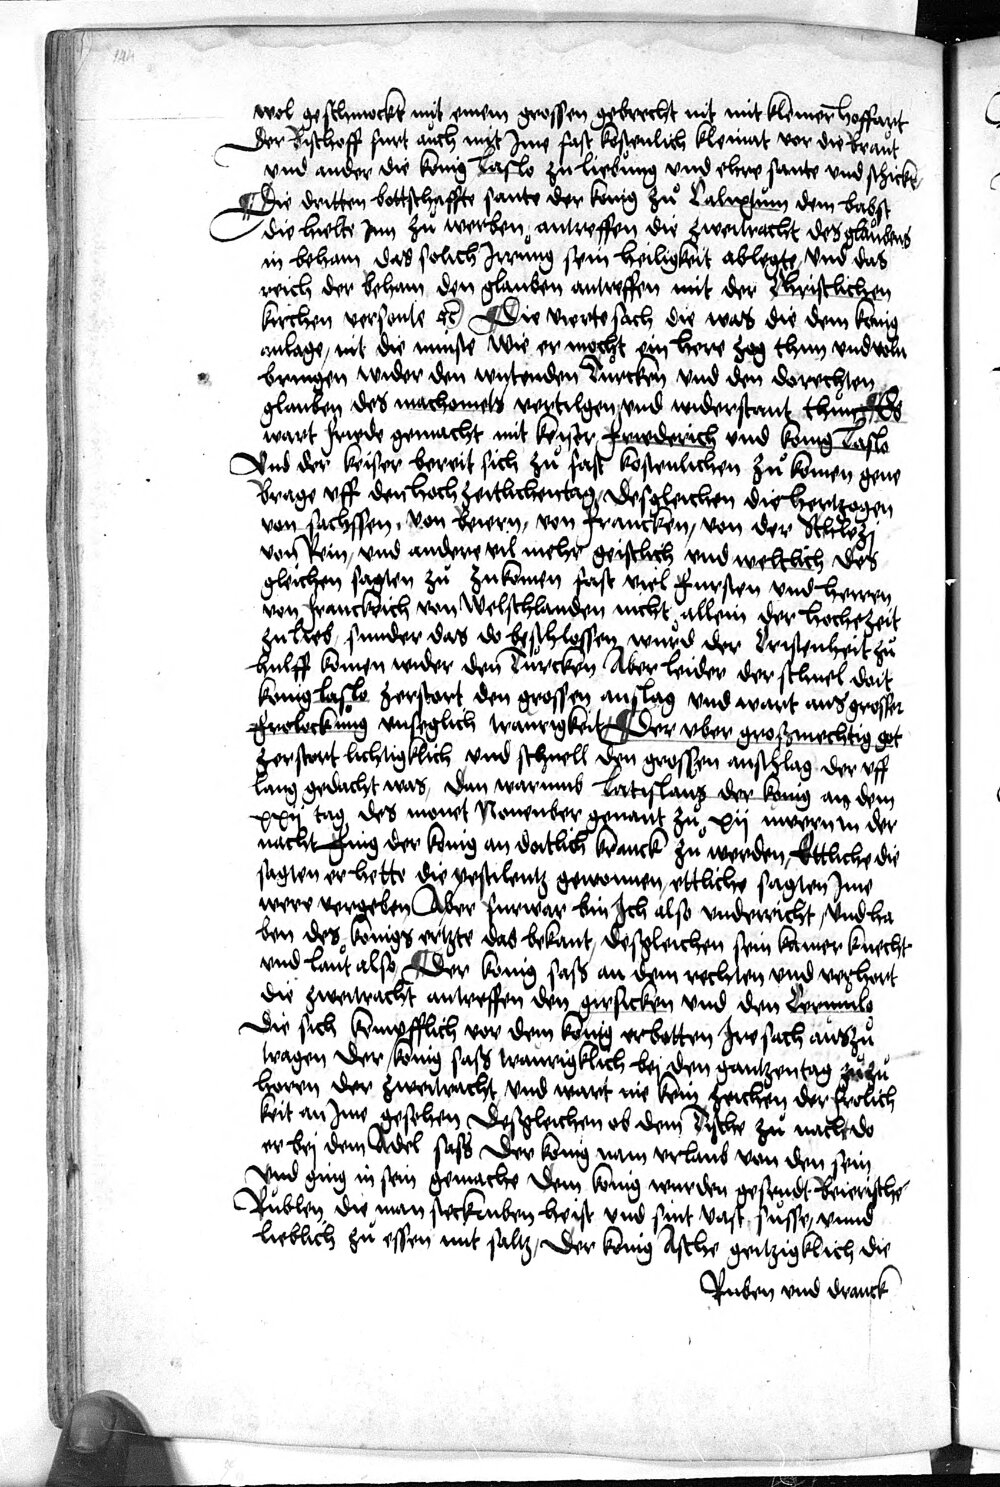 wol geschmockt mit einem grossen gebrecht nit mit kleiner hoffart
Der Bischoff furt auch mit Ime fast kostenlich kleinat vor die Braut
vnd ander die konig Laslo zu liebung vnd ehre sante vnd schickt
Die dritten bottschaffte sante der konig zů Calixtum dem babst
die hielte Inn zů werben antreffen die zweitracht des glaubens
in beham das solich Irrung sein heiligkeit ablegte vnd das
reich der beham den glauben antreffen mit der Christlichen
kirchen versonte etc Die vierte sach die was die dem konig
anlage, nit die minste wie er mocht ein here zog thun vnd voln
bringen wider den wutenden Turcken vnd den dorechten
glauben des machomets vertilgen vnd widerstant thun Es
wart friede gemacht mit keiser friederich vnd konig Laslo
Vnd der keiser bereit sich zů fast kostenlichen zů komen gene
Brage vff den hochzeitlichen tag, Desgleichen die hertzogen
von sachssen, von Beiern, von Francken, von der Schlezj
von Rein, vnd andere vil mehr geistlich vnd weltlich Des
gleichen sagten zů zukomen fast viel fursten vnd herren
von franckrich von Welschlanden nicht allein der hochezeit
zu lieb, sunder das do beschlossen wurd der Cristenheit zů
hulff komen wider den Turcken Aber leider der schnel doit
konig laslo zerstort den grossen anslag vnd wart aus grosser
frolockung vnseglich traurigkeit Der vber großmechtig got
zerstort lichtigklich vnd schnell den grossen anschlag der vff
lang gedacht was, Dan warumb Latislaus der konig an dem
xxij tag des monet Nouenber genant zů xij in der
nacht fing der konig an doitlich kranck zů werden, Ettliche die
sagten er hette die pestilentz gewonnen, ettliche sagten Ime
were vergeben Aber furwar bin Ich also vnderricht, vnd ha
ben des konigs ertzte das bekant, desgleichen sein kamer knecht
vnd laut also Der konig saß an dem rechten vnd verhort
die zweitracht antreffen den girsicken vnd den
Die sich kempfflich vor dem konig erbotten Ire sach auszů
tragen Der konig saß traurigklich bei den gantzen tag zů
horen der zweitracht vnd wart nie kein zeichen der frolich
keit an Ime gesehen Desgleichen ob dem Tische zů nacht do
er bei dem Adel saß Der konig nam vrlaub von den sein
vnd ging in sein gemache Dem konig wurden gesendt beierische
Rublen, die man steckruben heist vnd sint vast susse, vnnd
lieblich zů essen mit saltz, Der konig Asche geitzigklich die
Ruben vnd dranck